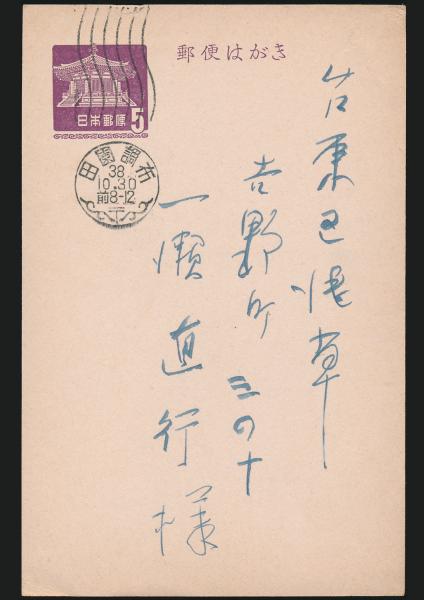 郵便はがき
日本郵便
5
田園調布
38.
10.30
前8-12
台東区浅草
吉野町三の十
一瀬直行様